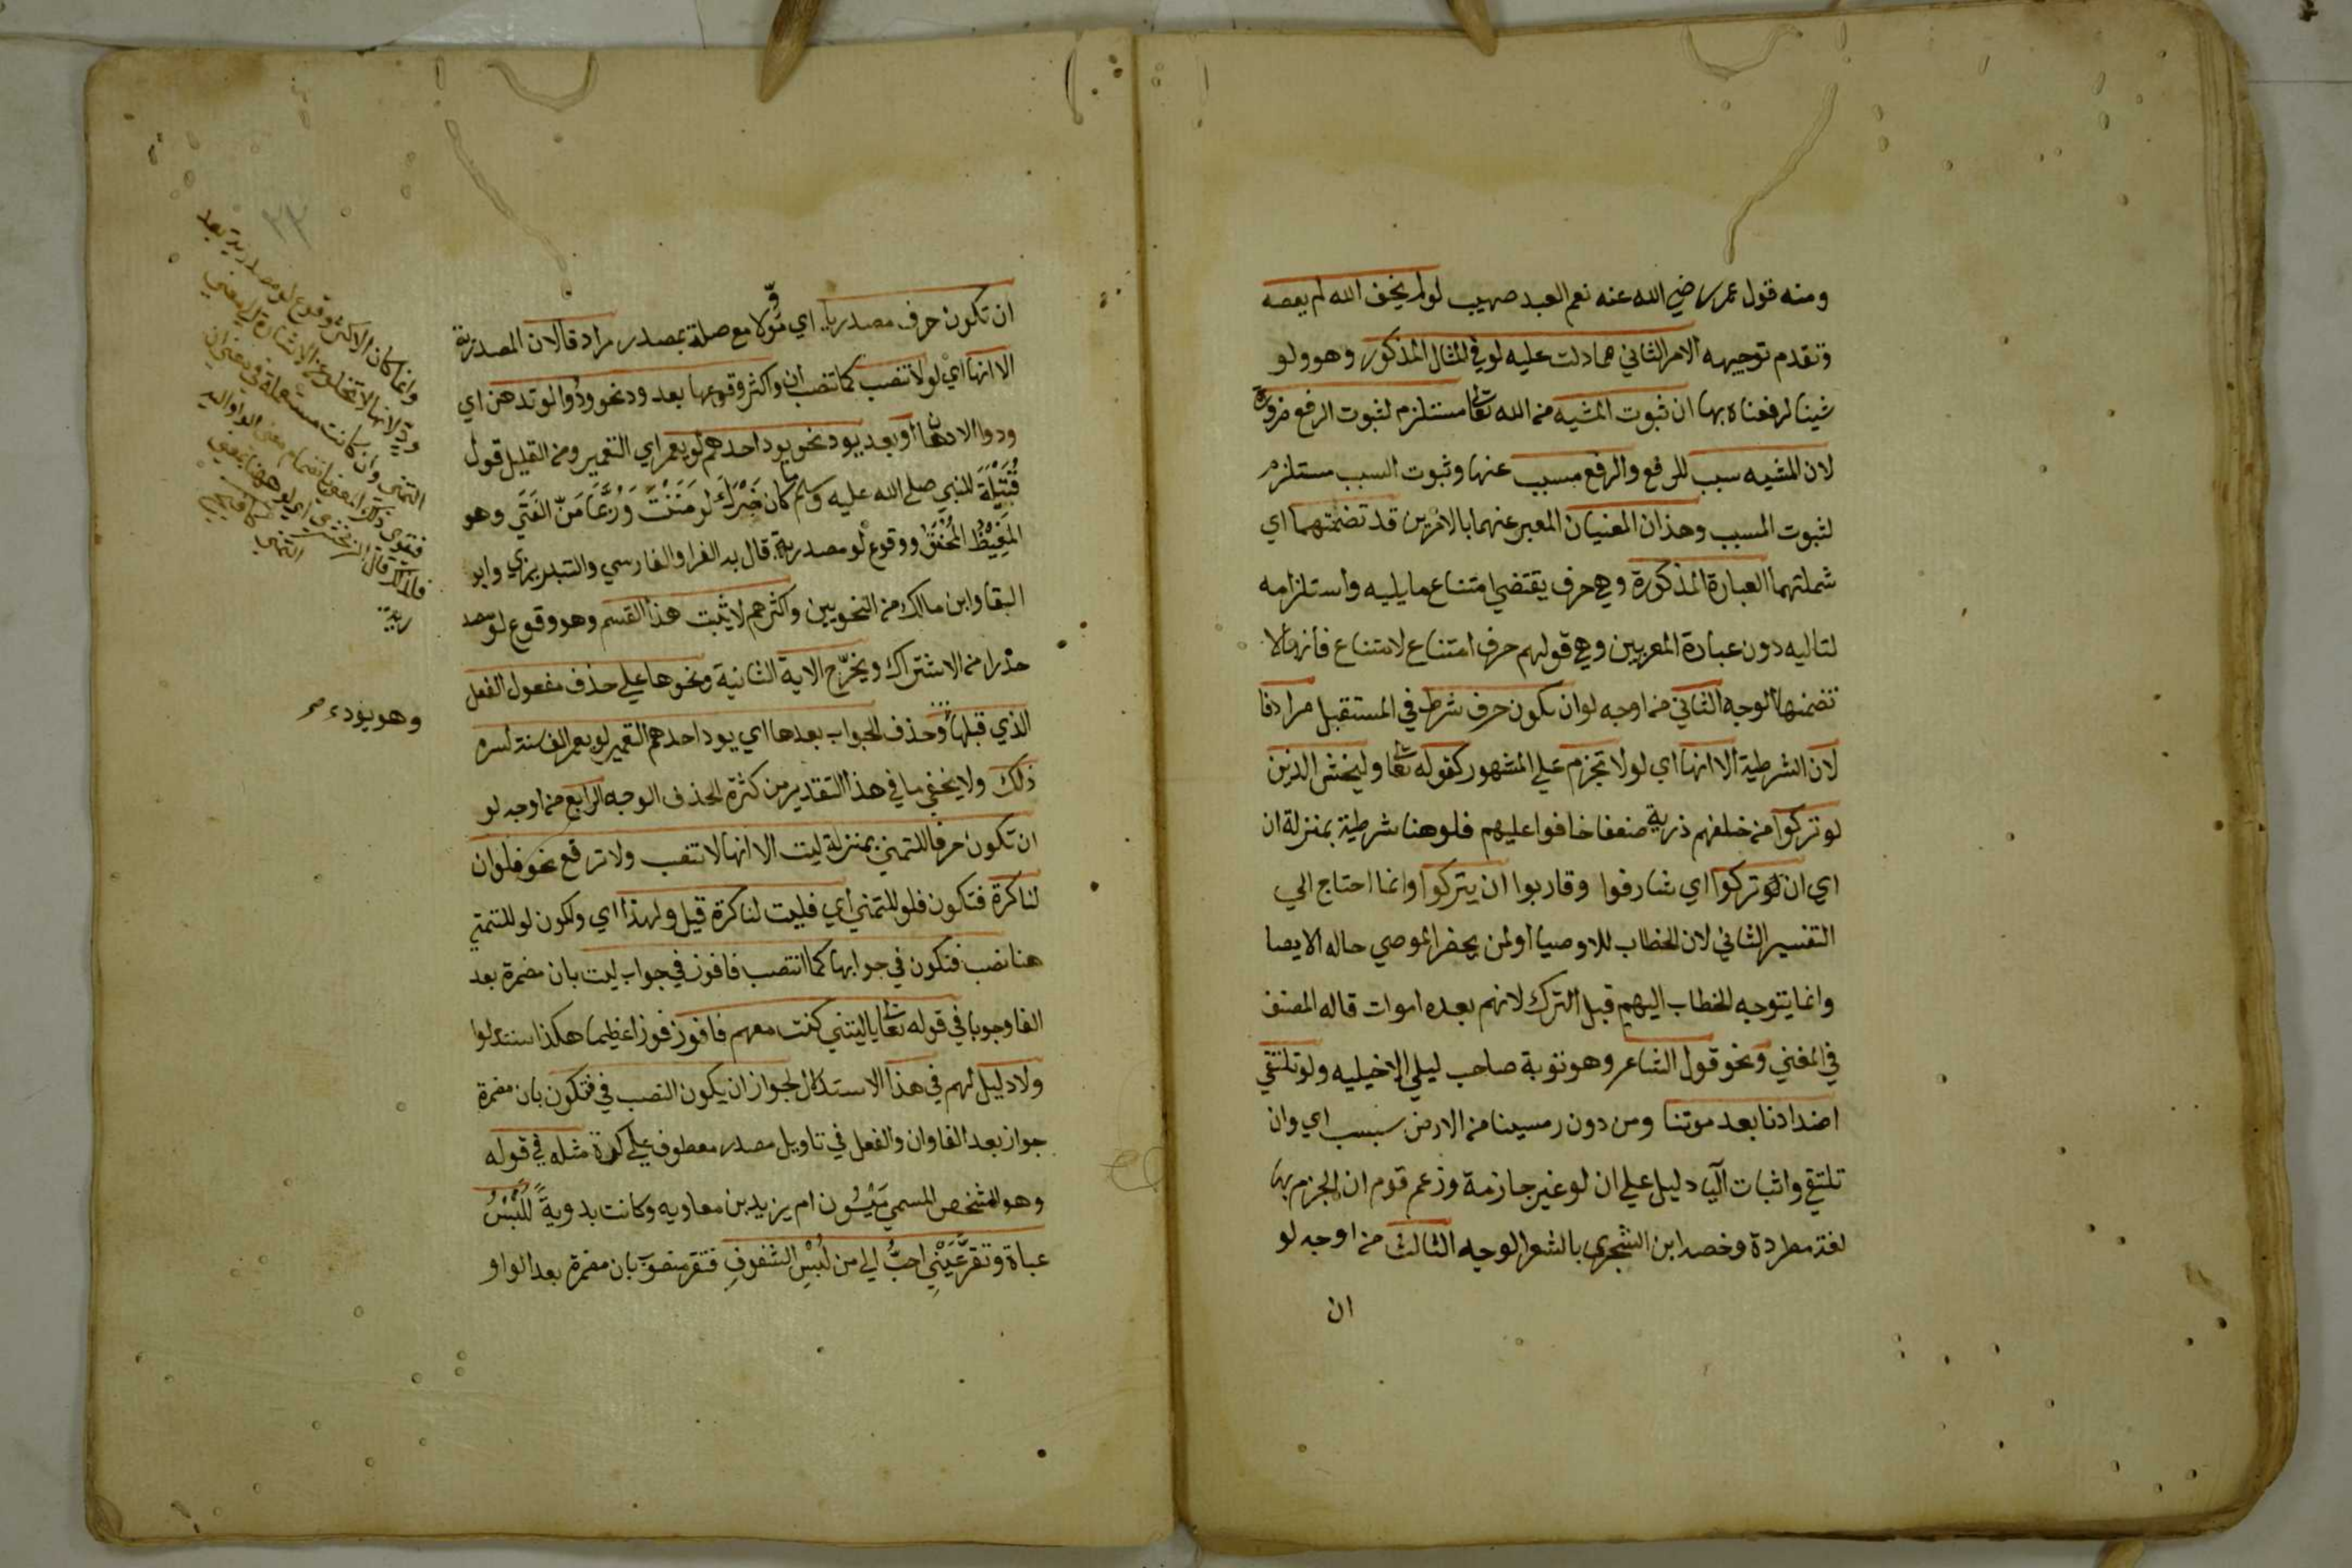 ومنه قول عمر رضي الله عنه نعم العبد صهيب لو لم يخف الله لم يعصه
وتقدم توجيهه الامر الثاني مما دلت عليه لو في المثال المذكور وهو ولو
شينا لرفعناه بها ان ثبوت المشيه من الله تعالى مستلزم لثبوت الرفع ضرورة
لان المشيه سبب للرفع والرفع مسبب عنها وثبوت السبب مستلزم
لثبوت المسبب وهذان المعنيان المعبر عنهما بالامرين قد تضمنتهما اي
شملتهما العبارة المذكورة وهي حرف يقتضي امتناع ما يليه واستلزامه
لتاليه دون عبارة المعربين وهي قولهم حرف امتناع لامتناع فانها لا
تضمنها الوجه الثاني من اوجه لو ان يكون حرف شرط في المستقبل مرادفا
لان الشرطية الا انها اي لو لا تجزم علي المشهور كقوله تعالى وليخش الذين
لو تركوا من خلفهم ذرية ضعفا خافوا عليهم فلو هنا شرطية بمنزلة ان
اي ان لو تركوا اي شارفوا وقاربوا ان يتركوا وانما احتاج الي
التفسير الثاني لان الخطاب للاوصيا او لمن يحضر الموصي حاله الايصا
وانما يتوجه الخطاب اليهم قبل الترك لانهم بعده اموات قاله المصنف
في المغني ونحو قول الشاعر وهو توبة صاحب ليلي الاخيليه ولو تلتقي
اضدادنا بعد موتنا ومن دون رمسينا من الارض سبسب اي وان
تلتقي واثبات اليا دليل علي ان لو غير جازمة وزعم قوم ان الجزم بها
لغة مطردة وخصه ابن الشجري بالشعر الوجه الثالث من اوجه لو
ان
ان تكون حرف مصدريا اي مؤولا مع صلة بمصدر مرادفا لان المصدرية
الا انها اي لو لا تنصب كما تنصب ان واكثر وقوعها بعد ود نحو ودوا لو تدهن اي
ودوا الادهان او بعد يود نحو يود احدهم لو يعمر اي التعمير ومن القليل قول
قتيلة للنبي صلى الله عليه وسلم ما كان ضرك لو مننت وربما من الفتي وهو
المغيظ المحنق ووقوع لو مصدرية قال به الفرا والفارسي والتبريزي وابو
البقا وابن مالك من النحويين واكثرهم لا يثبت هذا القسم وهو وقوع لو مصد
حذرا من الاشتراك ويخرج الاية الثانية ونحوها علي حذف مفعول الفعل
الذي قبلها وحذف الجواب بعدها اي يود احدهم التعمير لو يعمر الف سنة لسره
ذلك ولا يخفي ما في هذا التقدير من كثرة الحذف الوجه الرابع من اوجه لو
ان تكون حرفا للتمني بمنزلة ليت الا انها لا تنصب ولا ترفع نحو فلو ان
لنا كرة فتكون فلو للتمني اي فليت لنا كرة قيل ولهذا اي ولكون لو للتمني
هنا نصب فتكون في جوابها كما انتصب فافوز في جواب ليت بان مضمرة بعد
الفا وجوبا في قوله تعالى يا ليتني كنت معهم فافوز فوزا عظيما هكذا استدلوا
ولا دليل لهم في هذا الاستدلال لجواز ان يكون النصب في فتكون بان مضمرة
جواز بعد الفا وان والفعل في تاويل مصدر معطوف علي كرة مثله في قوله
وهو الشخص المسمي ميسون ام يزيد بن معاويه وكانت بدوية للبس
عباة وتقر عيني احب الي من لبس الشفوف فتقر منصوب بان مضمرة بعد الواو
وانما كان الاكثر وقوع لو مصدرية بعد
ود لانها لا تخلو عن الاشارة الي معني
التمني وان كانت مستعملة في معني ان
ربة
وهو يود صح